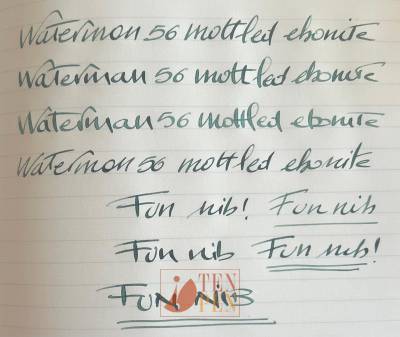 Waterman 56 mottled ebonite
Waterman 56 mottled ebonite
Waterman 56 mottled ebonite
Waterman 56 mottled ebonite
Fun nib! Fun nib
Fun nib Fun nib!
FUN NIB
TEN
PEN